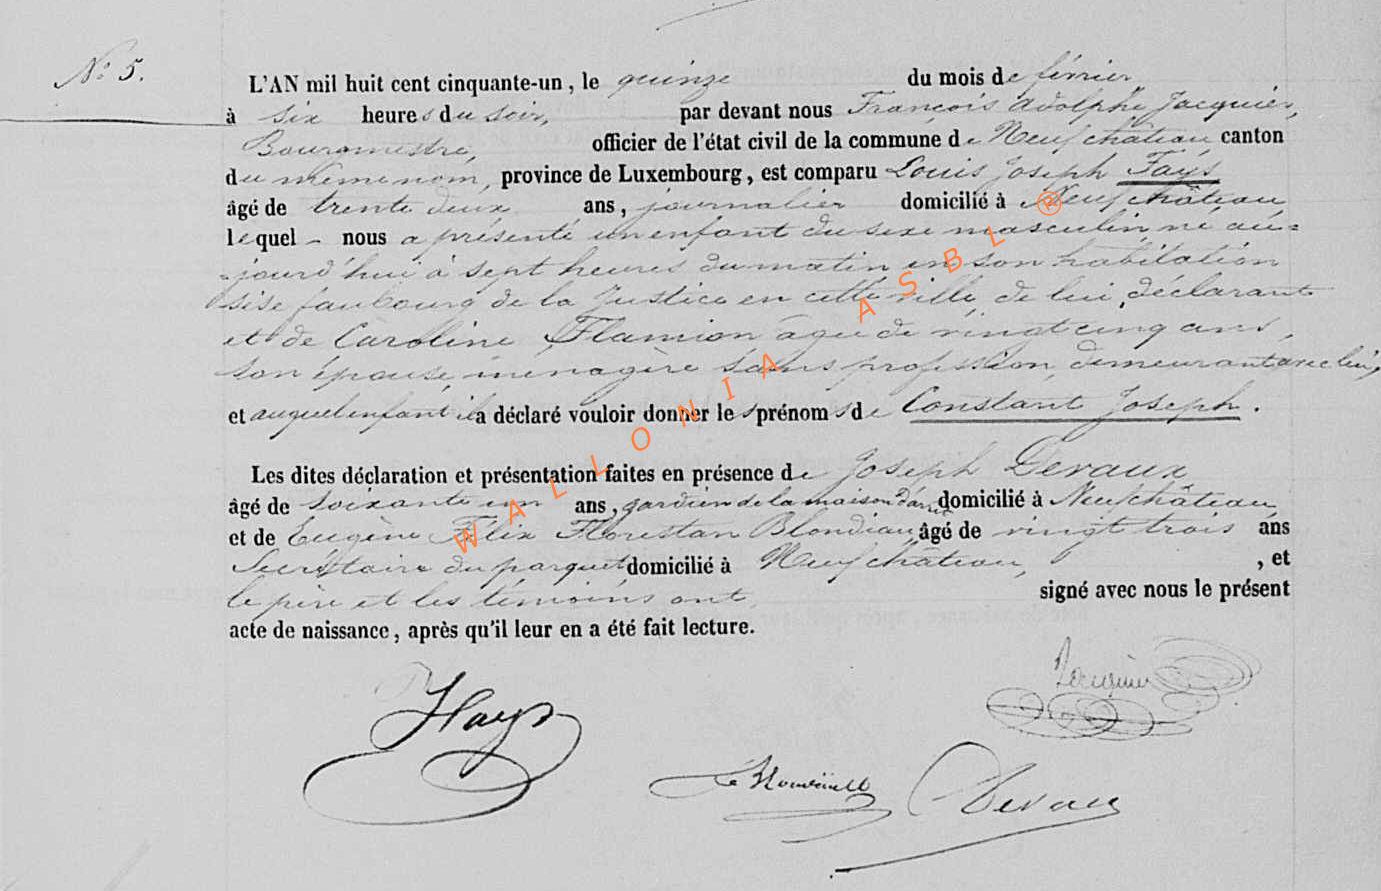 N° 5.
L'AN mil huit cent cinquante-un, le quinze du mois de février
à six heures du soir, par devant nous François Adolphe Jacquier,
Bourgmestre, officier de l'état civil de la commune de Neufchâteau canton
du même nom, province de Luxembourg, est comparu Louis Joseph Fays
âgé de trente deux ans, journalier domicilié à Neufchâteau
lequel - nous a présenté un enfant du sexe masculin né au=
=jourd'hui à sept heures du matin en son habitation
sise faubourg de la Justice en cette ville de lui, déclarant
et de Caroline Flamion âgée de vingt cinq ans,
son épouse, ménagère sans profession, demeurant avec lui,
et auquel enfant il a déclaré vouloir donner les prénoms de Constant Joseph.
Les dites déclaration et présentation faites en présence de Joseph Devaux
âgé de soixante un ans, gardien de la maison d'arrêt domicilié à Neufchâteau,
et de Eugène Félix Florestan Blondiau âgé de vingt trois ans
Secrétaire du parquet domicilié à Neufchâteau, , et
le père et les témoins ont, signé avec nous le présent
acte de naissance, après qu'il leur en a été fait lecture.
Jacquier
Fays
Devaux
WALLONIA ASBL ®